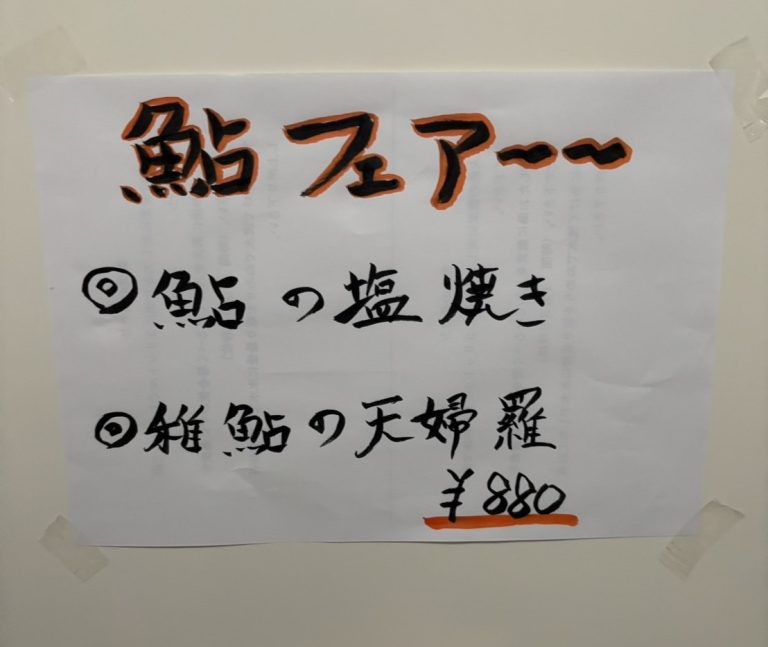 鮎フェア〜〜
◎鮎の塩焼き
◎稚鮎の天婦羅
¥880